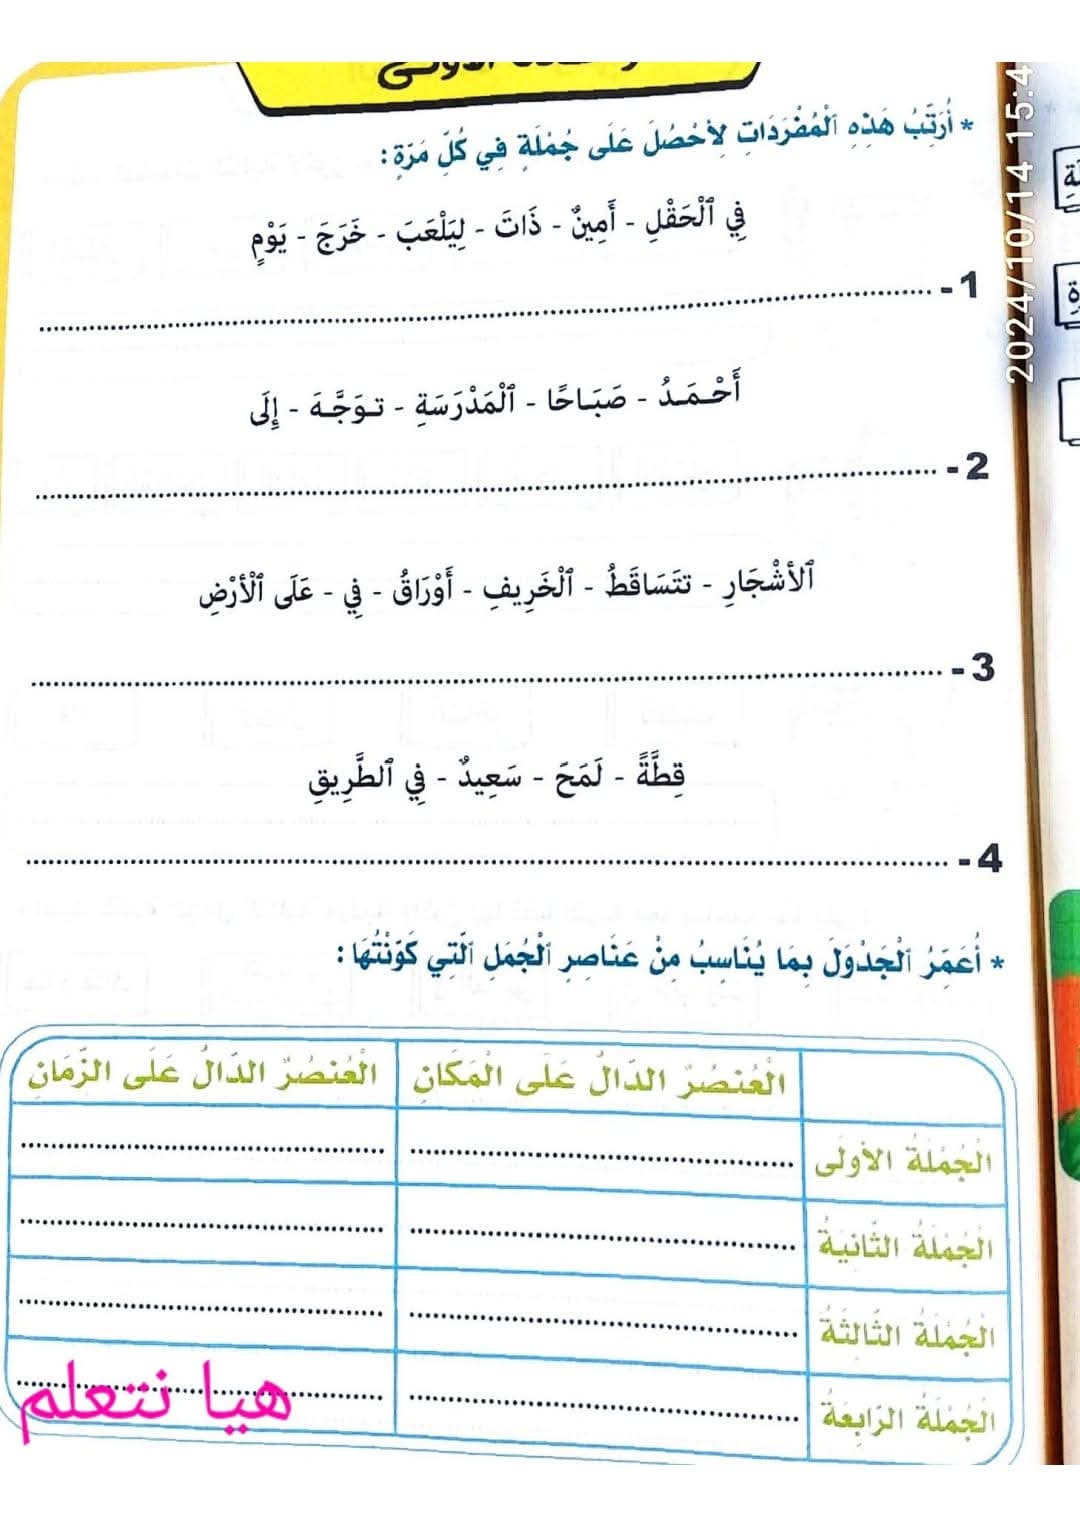 * أُرَتِّبُ هَذِهِ ٱلْمُفْرَدَاتِ لِأَحْصُلَ عَلَى جُمْلَةٍ فِي كُلِّ مَرَّةٍ :
فِي ٱلْحَقْلِ - أَمِينٌ - ذَاتَ - لِيَلْعَبَ - خَرَجَ - يَوْمٍ
1 - ........................................
أَحْمَدُ - صَبَاحًا - ٱلْمَدْرَسَةِ - تَوَجَّهَ - إِلَى
2 - ........................................
ٱلأَشْجَارِ - تَتَسَاقَطُ - ٱلْخَرِيفِ - أَوْرَاقُ - فِي - عَلَى ٱلْأَرْضِ
3 - ........................................
قِطَّةً - لَمَحَ - سَعِيدٌ - فِي ٱلطَّرِيقِ
4 - ........................................
* أُعَمِّرُ ٱلْجَدْوَلَ بِمَا يُنَاسِبُ مِنْ عَنَاصِرِ ٱلْجُمَلِ ٱلَّتِي كَوَّنْتُهَا :
الْعُنْصُرُ الدَّالُّ عَلَى الْمَكَانِ الْعُنْصُرُ الدَّالُّ عَلَى الزَّمَانِ
الْجُمْلَةُ الأُولَى
الْجُمْلَةُ الثَّانِيَةُ
الْجُمْلَةُ الثَّالِثَةُ
الْجُمْلَةُ الرَّابِعَةُ
هيا نتعلم
2024/10/14 15:4